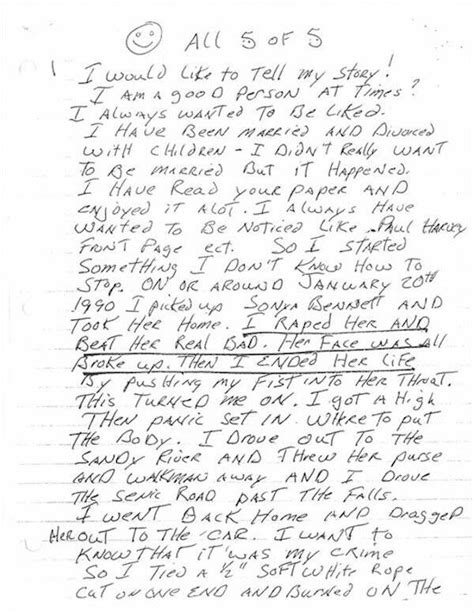 ALL 5 OF 5
I would like to Tell my story!
I am a good Person AT Times?
I Always wanted To Be Liked.
I Have Been married and Divorced
with children - I Didn't Really want
To Be married But it Happened.
I Have Read your paper and
enjoyed it Alot. I Always Have
wanted To Be Noticed Like Paul Harvey
Front Page ect. So I Started
Something I Don't Know How To
Stop. On or around January 20th
1990 I picked up Sonya Bennett and
Took Her Home. I Raped Her and
Beat Her Real Bad. Her Face was all
Broke up. Then I Ended Her Life
By pushing my Fist into Her Throat.
This Turned me on. I got a High
Then panic set in. Where to put
The Body. I Drove out To The
Sandy River and Threw Her purse
and walkman away and I Drove
The Scenic Road past The Falls.
I went Back Home and Dragged
Her out to the car. I want to
Know that it was my crime
So I Tied a ½" soft white Rope
cut on one end and Burned on The